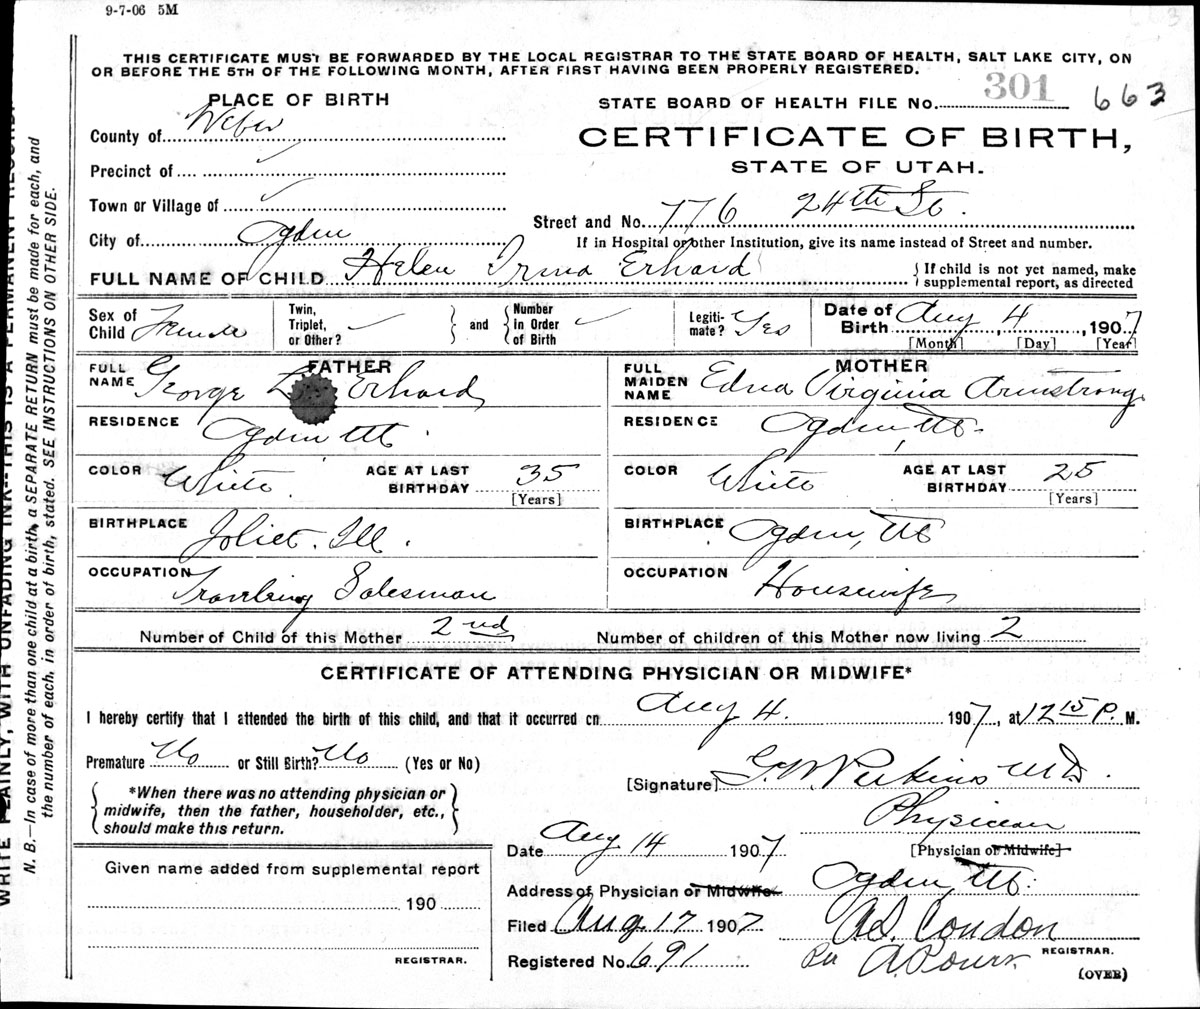 9-7-06 5M
THIS CERTIFICATE MUST BE FORWARDED BY THE LOCAL REGISTRAR TO THE STATE BOARD OF HEALTH, SALT LAKE CITY, ON
OR BEFORE THE 5TH OF THE FOLLOWING MONTH, AFTER FIRST HAVING BEEN PROPERLY REGISTERED.
PLACE OF BIRTH
STATE BOARD OF HEALTH FILE No. 301 663
County of Weber
CERTIFICATE OF BIRTH,
Precinct of ✓
STATE OF UTAH.
Town or Village of ✓
Street and No. 776 24th St.
City of Ogden
If in Hospital or other Institution, give its name instead of Street and number.
FULL NAME OF CHILD Helen Irma Erhard
{ If child is not yet named, make
supplemental report, as directed
Sex of Child Female
Twin, Triplet, or Other? ✓ and Number in Order of Birth ✓
Legiti-mate? Yes
Date of Birth Aug 4, 1907
[Month] [Day] [Year]
FATHER
FULL NAME George Erhard
RESIDENCE Ogden Ut.
COLOR White AGE AT LAST BIRTHDAY 35
[Years]
BIRTHPLACE Joliet, Ill.
OCCUPATION Traveling Salesman
MOTHER
FULL MAIDEN NAME Edna Virginia Armstrong
RESIDENCE Ogden, Ut.
COLOR White AGE AT LAST BIRTHDAY 25
[Years]
BIRTHPLACE Ogden, Ut
OCCUPATION Housewife
Number of Child of this Mother 2nd Number of children of this Mother now living 2
CERTIFICATE OF ATTENDING PHYSICIAN OR MIDWIFE*
I hereby certify that I attended the birth of this child, and that it occurred on Aug 4. 1907, at 12 15 P. M.
Premature No or Still Birth? No (Yes or No)
[Signature] G. W. Perkins M D.
*When there was no attending physician or
midwife, then the father, householder, etc.,
should make this return.
Physician
[Physician or Midwife]
Date Aug 14 1907
Address of Physician or Midwife Ogden, Ut.
Filed Aug 17 1907 Condon
REGISTRAR.
Registered No. 691 Per
(OVER)
Given name added from supplemental report
190
REGISTRAR.
WRITE PLAINLY, WITH UNFADING INK--THIS IS A PERMANENT RECORD.
N. B.—In case of more than one child at a birth, a SEPARATE RETURN must be made for each, and
the number of each, in order of birth, stated. SEE INSTRUCTIONS ON OTHER SIDE.